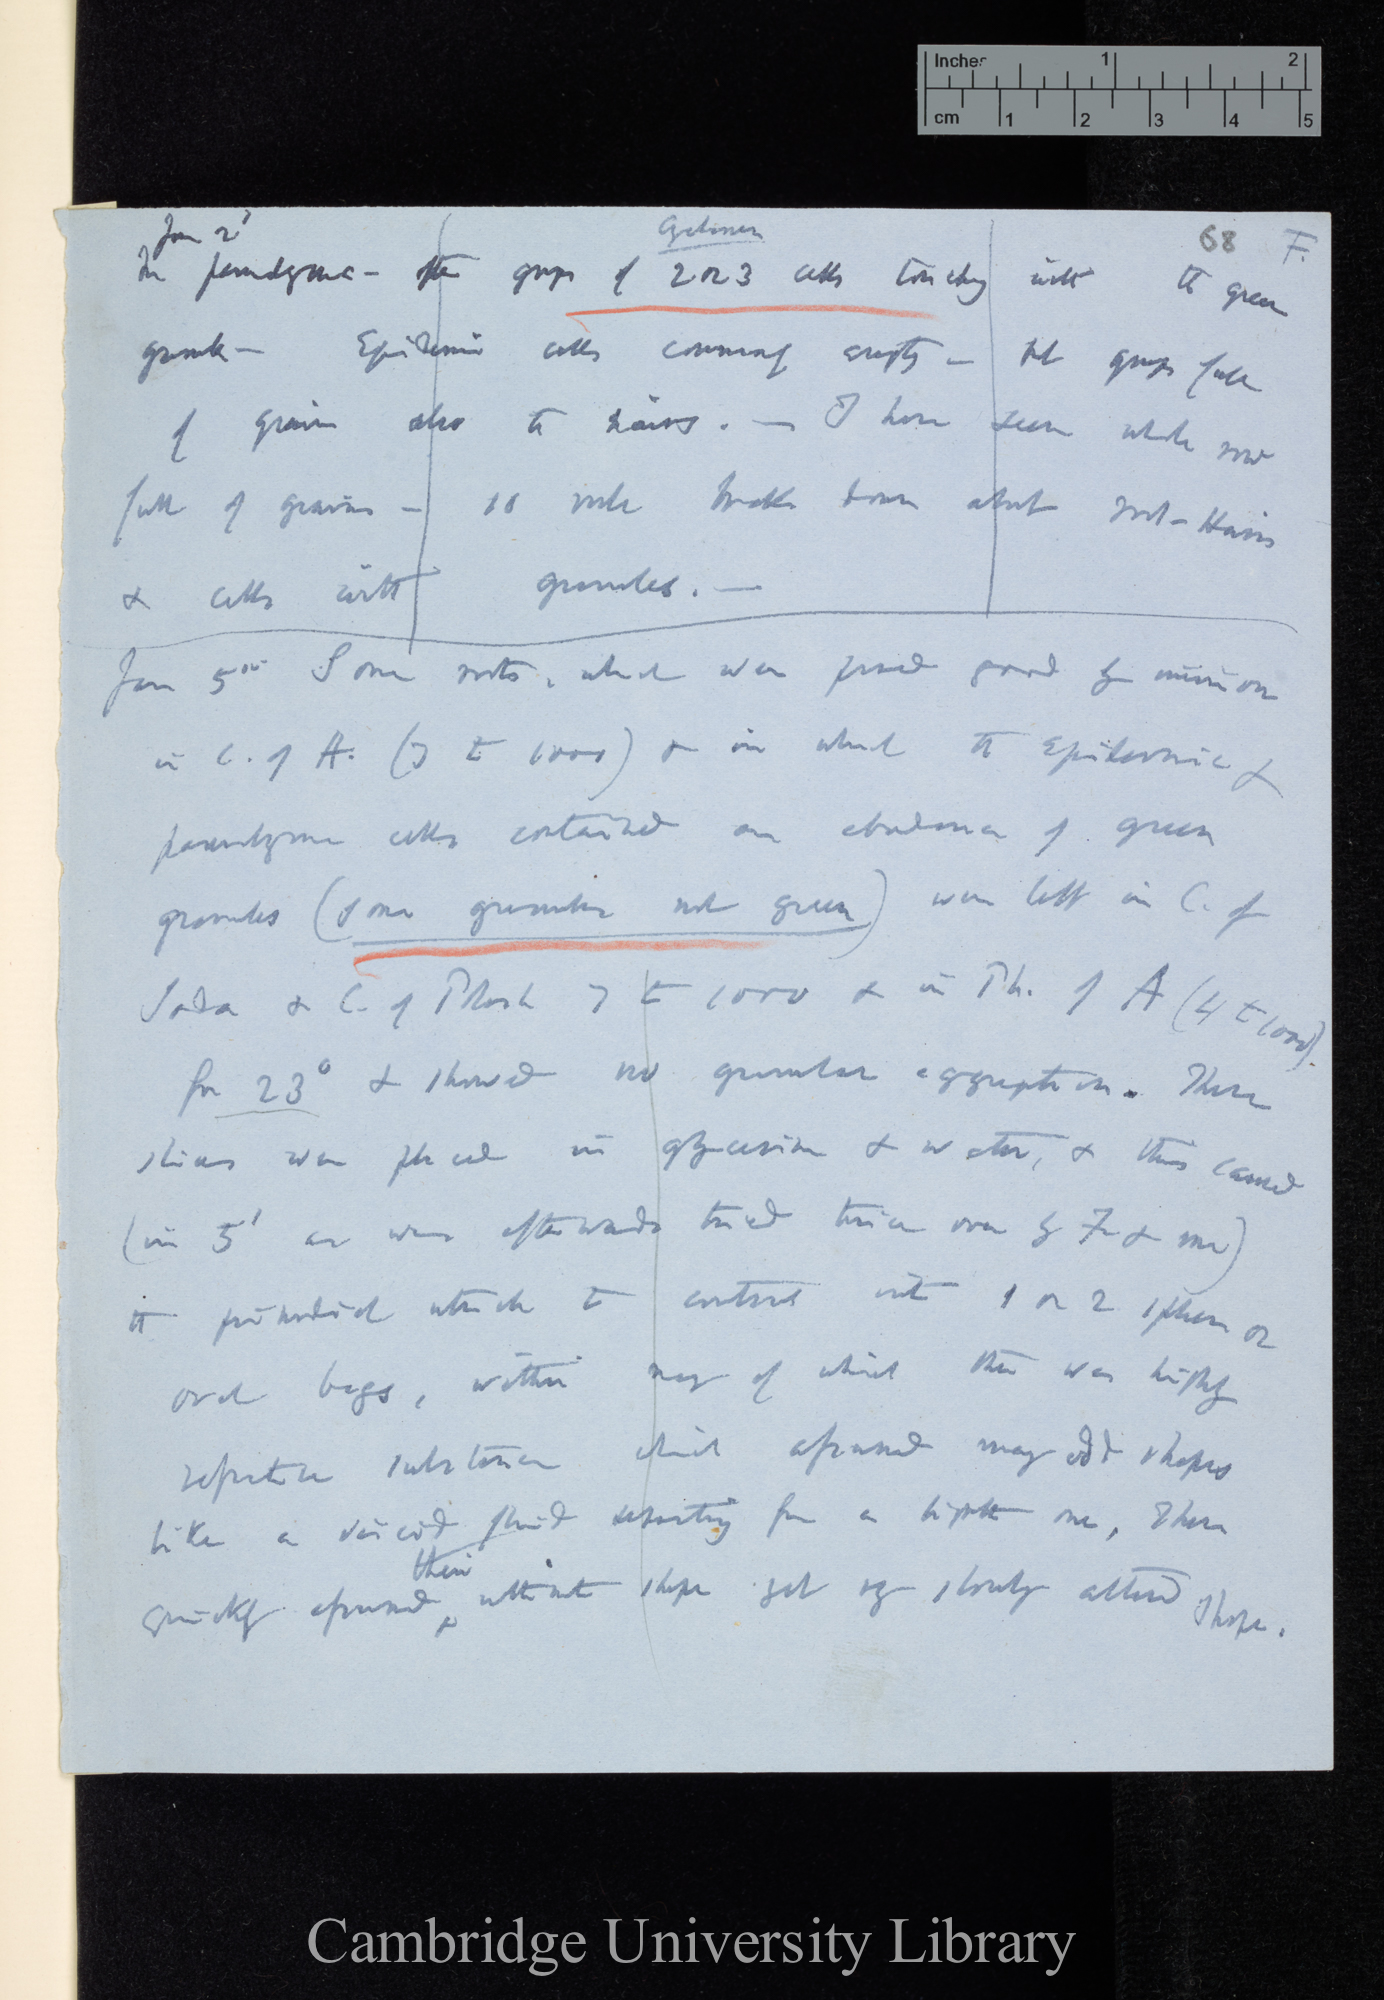 Inches 1 2
cm 1 2 3 4 5
Jan 2
Cyclamen
68 F.
In parenchyma — often groups of 2 or 3 cells touching with the green
granules — Epidermic cells commonly empty — but groups full
of grains also the hairs. — I have seen whole row
full of grains — so rule breaks down about root-hairs
& cells with granules. —
Jan 5th Some roots, which were proved good by immersion
in C. of A. (7 to 1000) & in which the epidermic &
parenchyma cells contained an abundance of green
granules (some granules not green) were left in C. of
Soda & C. of Potash 7 to 1000 & in Ph. of A (4 to 1000).
for 23° & showed no granular aggregation. These
slices were placed in glycerine & water, & this caused
(in 5' as was afterwards tried twice over by F. & me)
the primordial utricle to contract into 1 or 2 spheres or
oval bags, within many of which there was highly
refractive substance which assumed many odd shapes
like a viscid fluid separating from a lighter one, These
quickly assumed their ultimate shape yet slowly altered shape.
Cambridge University Library